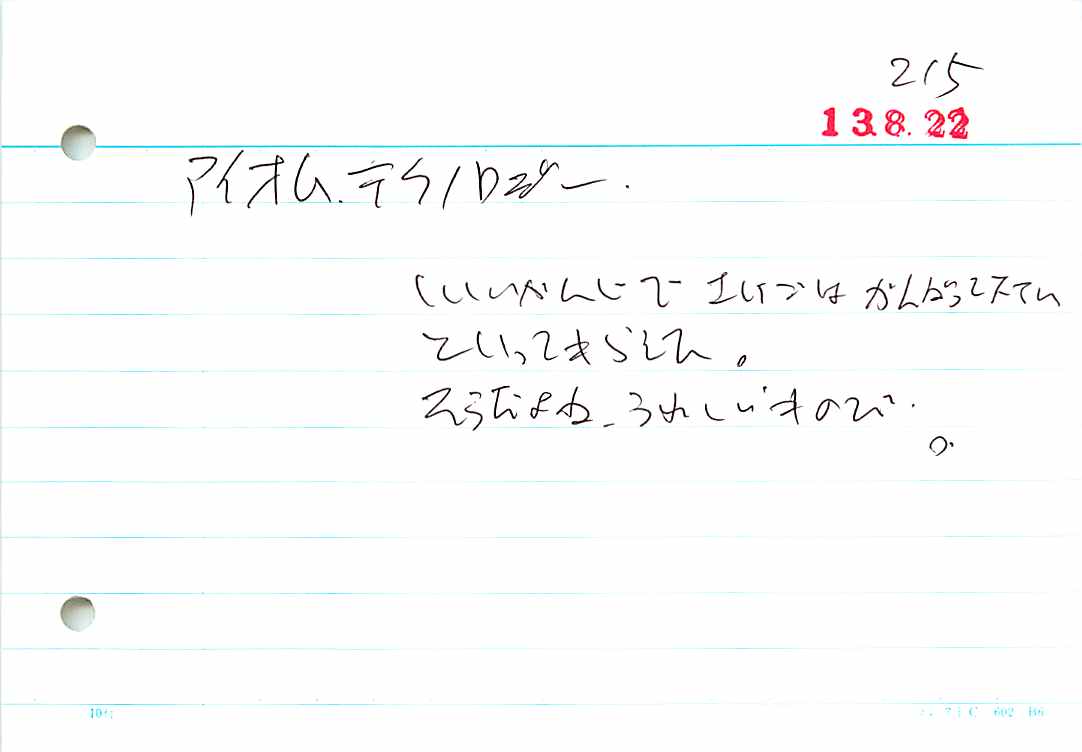 215
13.8.22
アイオム.テクノロジー.
いいかんじで まいごは がんばってえてい
といってもらえた。
そうだよね、うれしいものだ.
。